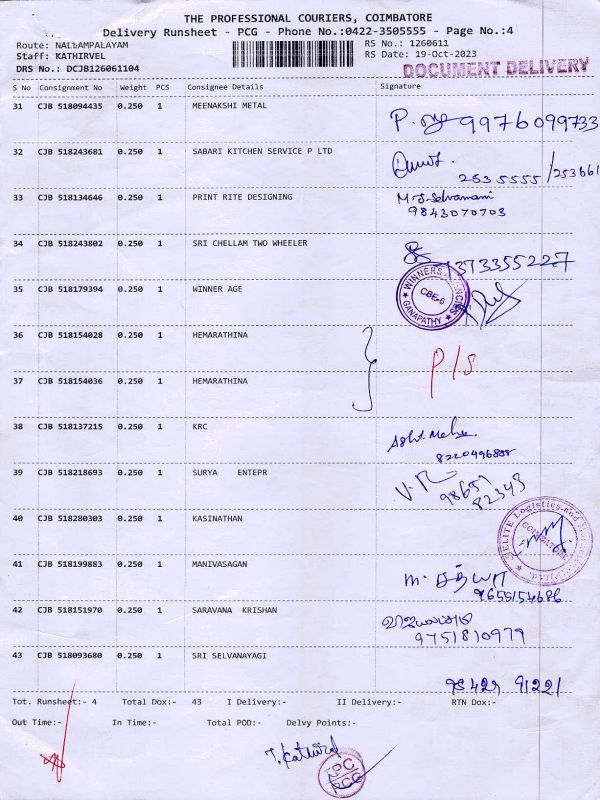 THE PROFESSIONAL COURIERS, COIMBATORE
Delivery Runsheet - PCG - Phone No.:0422-3505555 - Page No.:4
Route: NALLAMPALAYAM
RS No.: 1260611
Staff: KATHIRVEL
RS Date: 19-Oct-2023
DRS No.: DCJB126061104
DOCUMENT DELIVERY
S No Consignment No Weight PCS Consignee Details Signature
31 CJB 518094435 0.250 1 MEENAKSHI METAL
P. 9976099733
32 CJB 518243681 0.250 1 SABARI KITCHEN SERVICE P LTD
253 5555 /253661
33 CJB 518134646 0.250 1 PRINT RITE DESIGNING M.S. Selvamani
9843070703
34 CJB 518243802 0.250 1 SRI CHELLAM TWO WHEELER
35 CJB 518179394 0.250 1 WINNER AGE
WINNERS AGENCIES
CBE-6
GANAPATHY
36 CJB 518154028 0.250 1 HEMARATHINA
P/S
37 CJB 518154036 0.250 1 HEMARATHINA
38 CJB 518137215 0.250 1 KRC
39 CJB 518218693 0.250 1 SURYA ENTEPR
98657
82343
40 CJB 518280303 0.250 1 KASINATHAN
ELITE Logistics and
COIMBATORE
41 CJB 518199883 0.250 1 MANIVASAGAN
9655154686
42 CJB 518151970 0.250 1 SARAVANA KRISHAN
9751810979
43 CJB 518093680 0.250 1 SRI SELVANAYAGI
98429 91221
Tot. Runsheet:- 4 Total Dox:- 43 I Delivery:- II Delivery:- RTN Dox:-
Out Time:- In Time:- Total POD:- Delvy Points:-
T. Kathirvel
PC
PCG